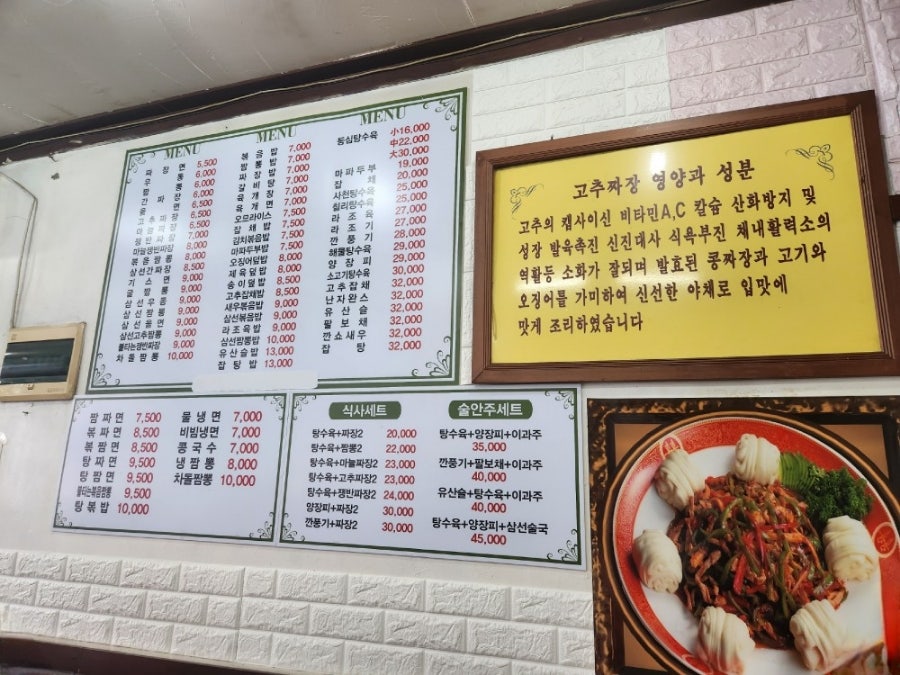 MENU
짜장면 5,500
우동 6,000
짬뽕 6,000
간짜장 6,000
울면
고추짜장 7,000
마늘짜장 7,000
쟁반짜장
마늘쟁반짜장 8,000
볶음짬뽕 8,000
삼선간짜장 8,000
기스면
굴짬뽕 9,000
삼선우동 9,000
삼선짬뽕 9,000
삼선울면 9,000
삼선고추짬뽕 9,000
불타는쟁반짜장 9,000
차돌짬뽕 10,000
MENU
볶음밥 7,000
짬뽕밥 7,000
짜장밥 7,000
갈비탕 7,000
육개장 7,000
육개면 7,000
오므라이스 7,500
잡채밥 7,500
김치볶음밥 7,500
마파두부밥 8,000
오징어덮밥 8,000
제육덮밥 8,000
송이덮밥 8,000
고추잡채밥 8,500
새우볶음밥 9,000
삼선볶음밥 9,000
라조육밥 9,000
삼선짬뽕밥 10,000
유산슬밥 13,000
잡탕밥 13,000
MENU
등심탕수육 小16,000
中22,000
大30,000
마파두부 19,000
잡채 20,000
사천탕수육 25,000
칠리탕수육 25,000
라조육 27,000
라조기 28,000
깐풍기 28,000
해물탕수육 29,000
양장피 29,000
소고기탕수육 30,000
고추잡채 30,000
난자완스 32,000
유산슬 32,000
팔보채 32,000
깐쇼새우 32,000
잡탕 32,000
고추짜장 영양과 성분
고추의 캡사이신 비타민A,C 칼슘 산화방지 및
성장 발육촉진 신진대사 식욕부진 채내활력소의
역활등 소화가 잘되며 발효된 콩짜장과 고기와
오징어를 가미하여 신선한 야채로 입맛에
맞게 조리하였습니다
짬짜면 7,500
볶짜면 8,500
볶짬면 8,500
탕짜면 9,500
탕짬면 9,500
불타는볶음짬뽕 9,500
탕볶밥 10,000
물냉면 7,000
비빔냉면 7,000
콩국수 7,000
냉짬뽕 8,000
차돌짬뽕 10,000
식사세트
탕수육+짜장2 20,000
탕수육+짬뽕2 22,000
탕수육+마늘짜장2 23,000
탕수육+고추짜장2 23,000
탕수육+쟁반짜장2 24,000
양장피+짜장2 30,000
깐풍기+짜장2 30,000
술안주세트
탕수육+양장피+이과주
35,000
깐풍기+팔보채+이과주
40,000
유산슬+탕수육+이과주
40,000
탕수육+양장피+삼선술국
45,000